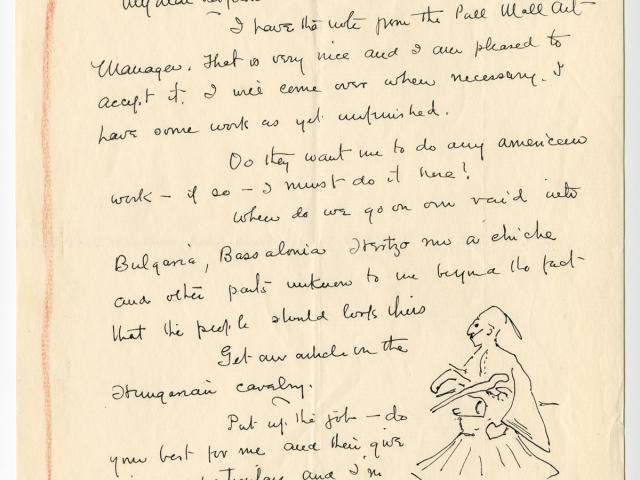 My dear
I have the note from the Pall Mall Art
Manager. That is very nice and I am pleased to
accept it. I will come over when necessary. I
have some work as yet unfinished.
Do they want me to do any american
work – if so – I must do it here!
When do we go on our raid into
Bulgaria, Bassalonia
and other parts unknown to me beyond the fact
that the people should look this
Get an article on the
Hungarian cavalry.
Put up the job – do
your best for me and then give
and I'm